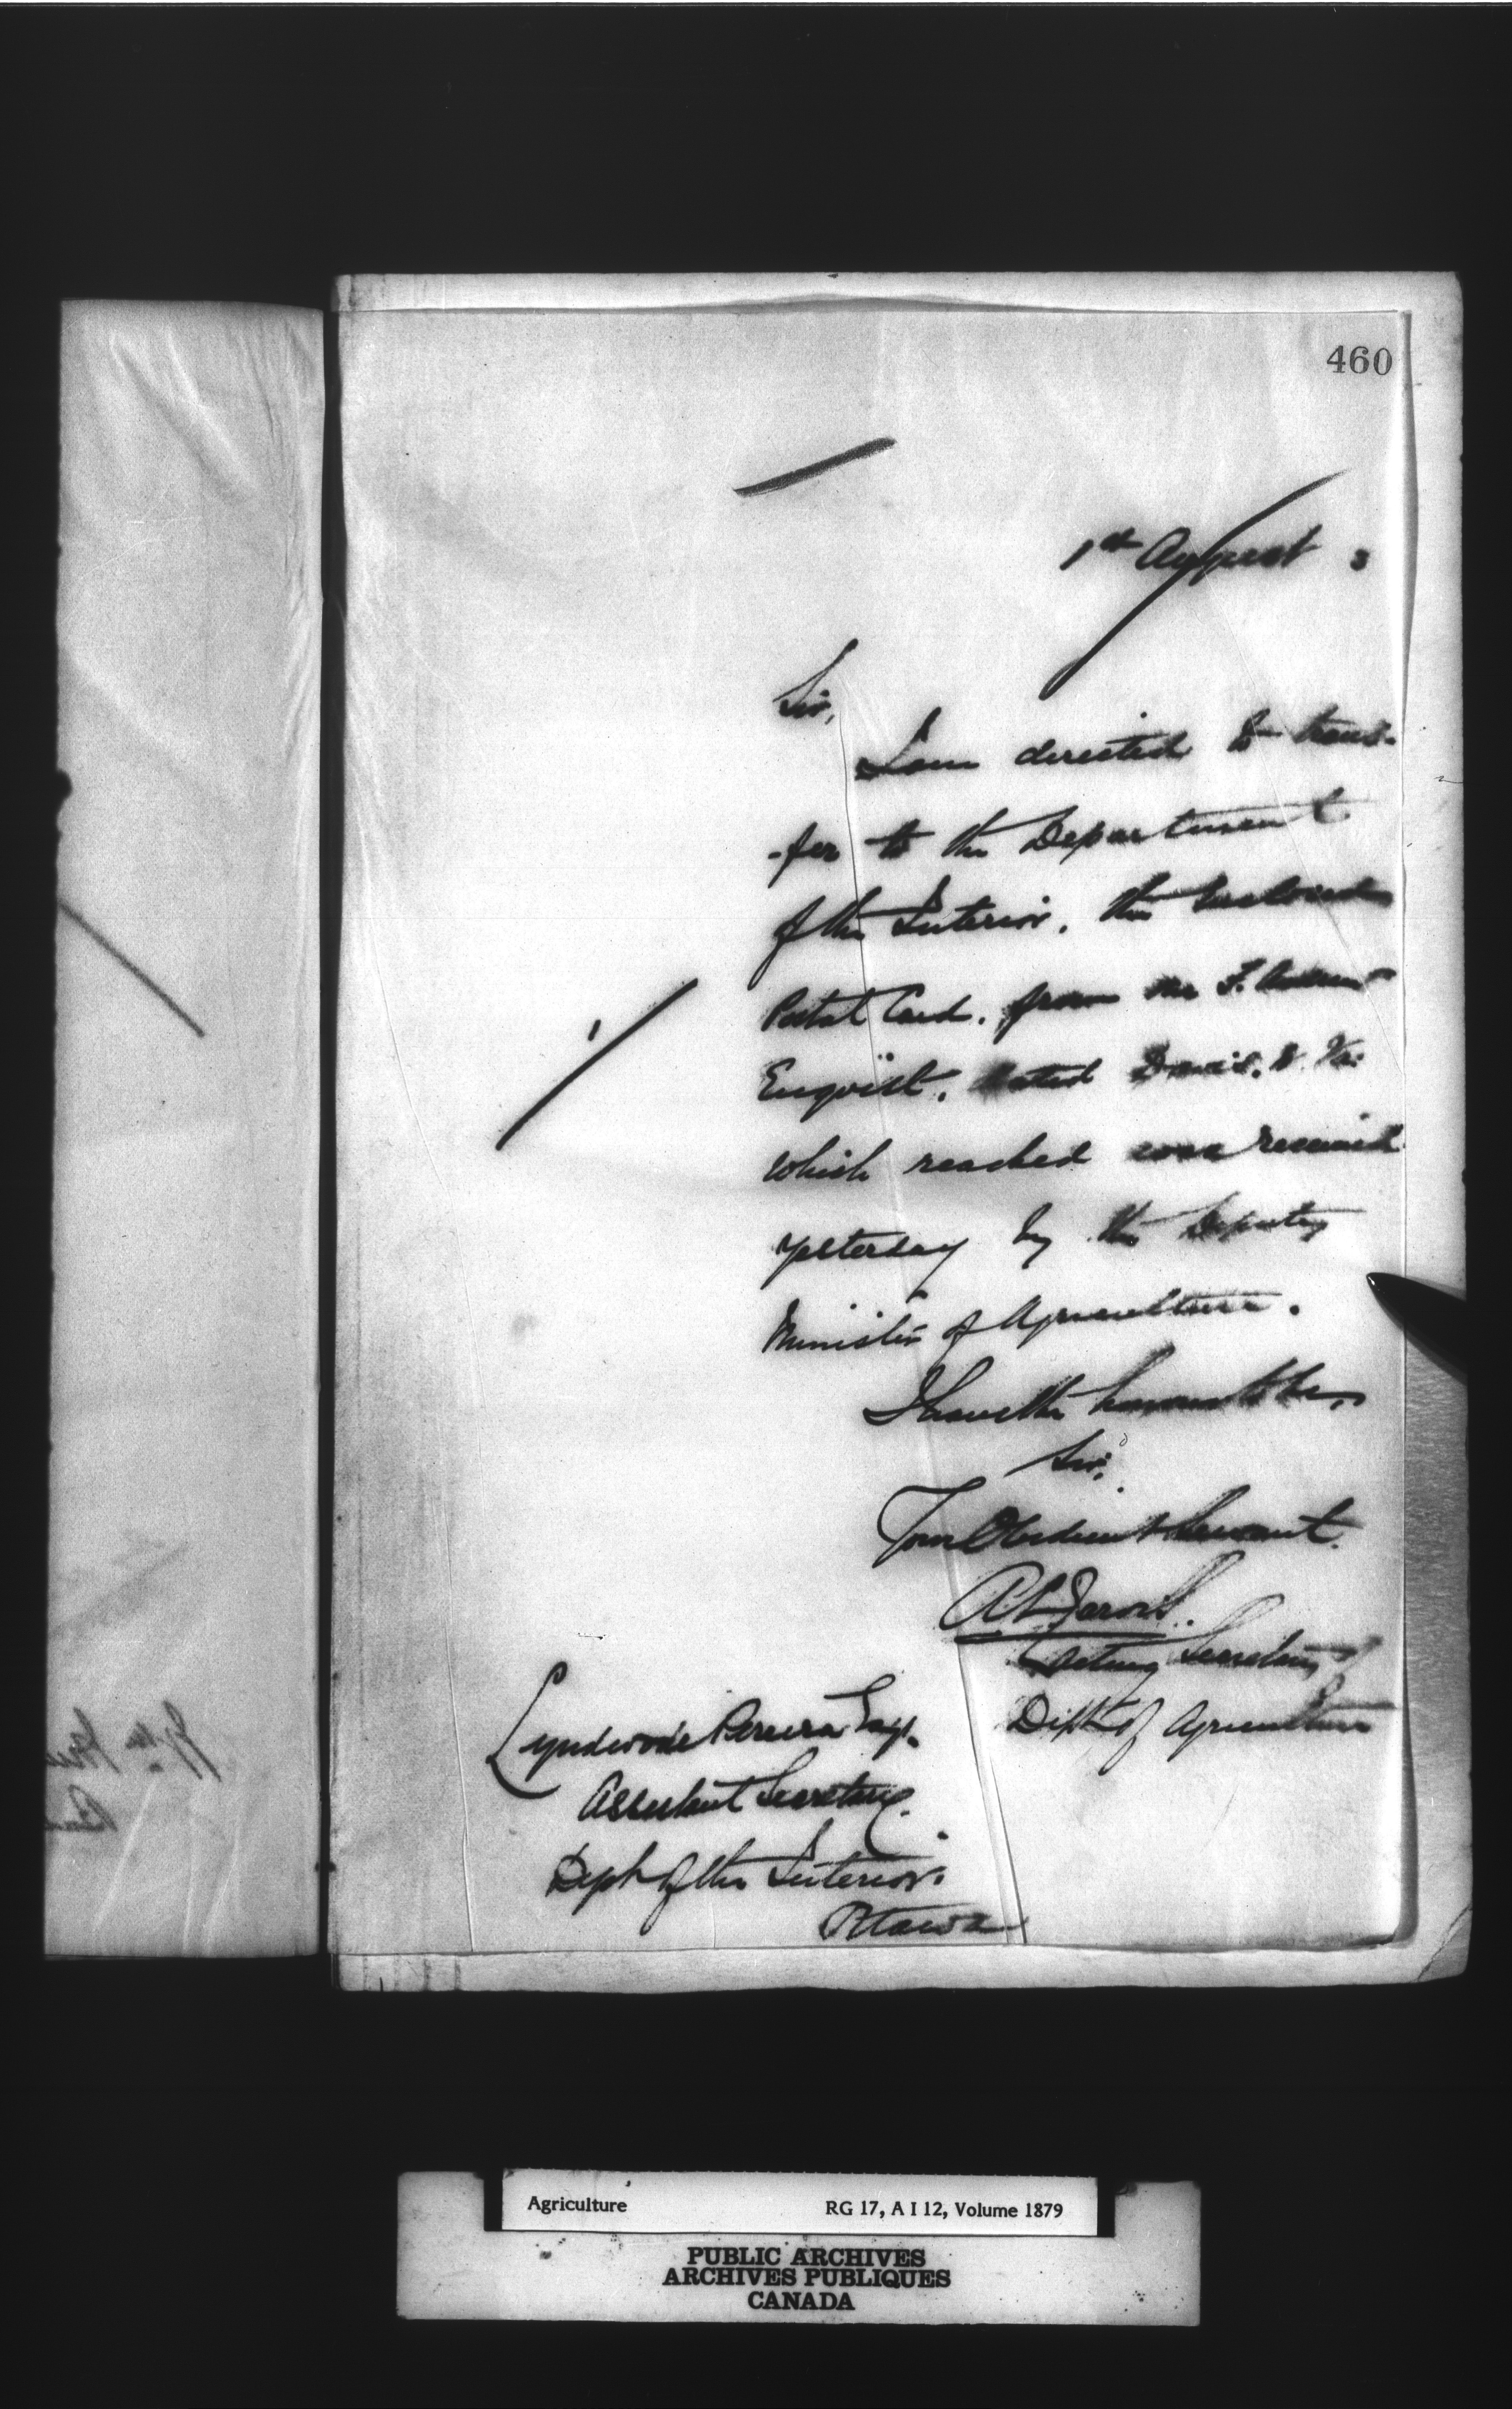 460
1st August 3
Sir,
I am directed to trans-
-fer to the Department
of the Interior, the Enclosed
Postal Card, from Mr F. August
Enqvist, dated Davis, W. Va.
which reached was received
yesterday by the Deputy
Minister of Agriculture.
I have the honour to be,
Sir,
Your Obedient Servant.
A L Jarvis.
Acting Secretary
Dept. of Agriculture
Lyndwode Pereira Esqr.
Assistant Secretary.
Dept of the Interior.
Ottawa
Agriculture RG 17, A I 12, Volume 1879
PUBLIC ARCHIVES
ARCHIVES PUBLIQUES
CANADA